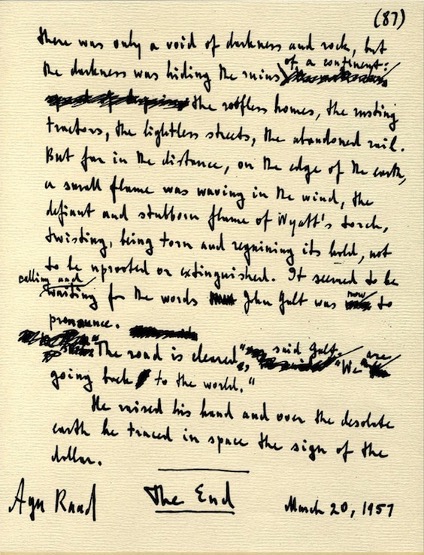 (87)
there was only a void of darkness and rock, but
of a continent:
the darkness was hiding the ruins
the roofless homes, the rusting
tractors, the lightless streets, the abandoned rail.
But far in the distance, on the edge of the earth,
a small flame was waving in the wind, the
defiant and stubborn flame of Wyatt's torch,
twisting, being torn and regaining its hold, not
to be uprooted or extinguished. It seemed to be
calling and
waiting for the words John Galt was now to
pronounce.
"The road is cleared," said Galt. "We are
going back to the world."
He raised his hand and over the desolate
earth he traced in space the sign of the
dollar.
The End
Ayn Rand
March 20, 1957